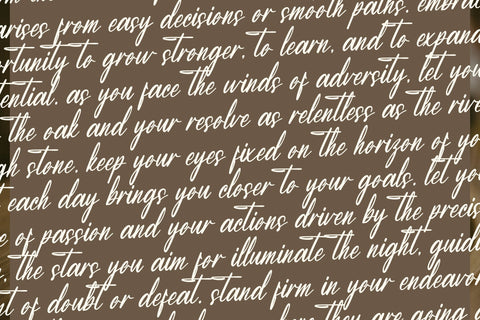 arises from easy decisions or smooth paths. embrac
ortunity to grow stronger, to learn, and to expand
tential. as you face the winds of adversity, let you
the oak and your resolve as relentless as the rive
gh stone. keep your eyes fixed on the horizon of yo
t each day brings you closer to your goals. let yo
e of passion and your actions driven by the precis
. the stars you aim for illuminate the night, guidi
nt of doubt or defeat. stand firm in your endeavor
they are going